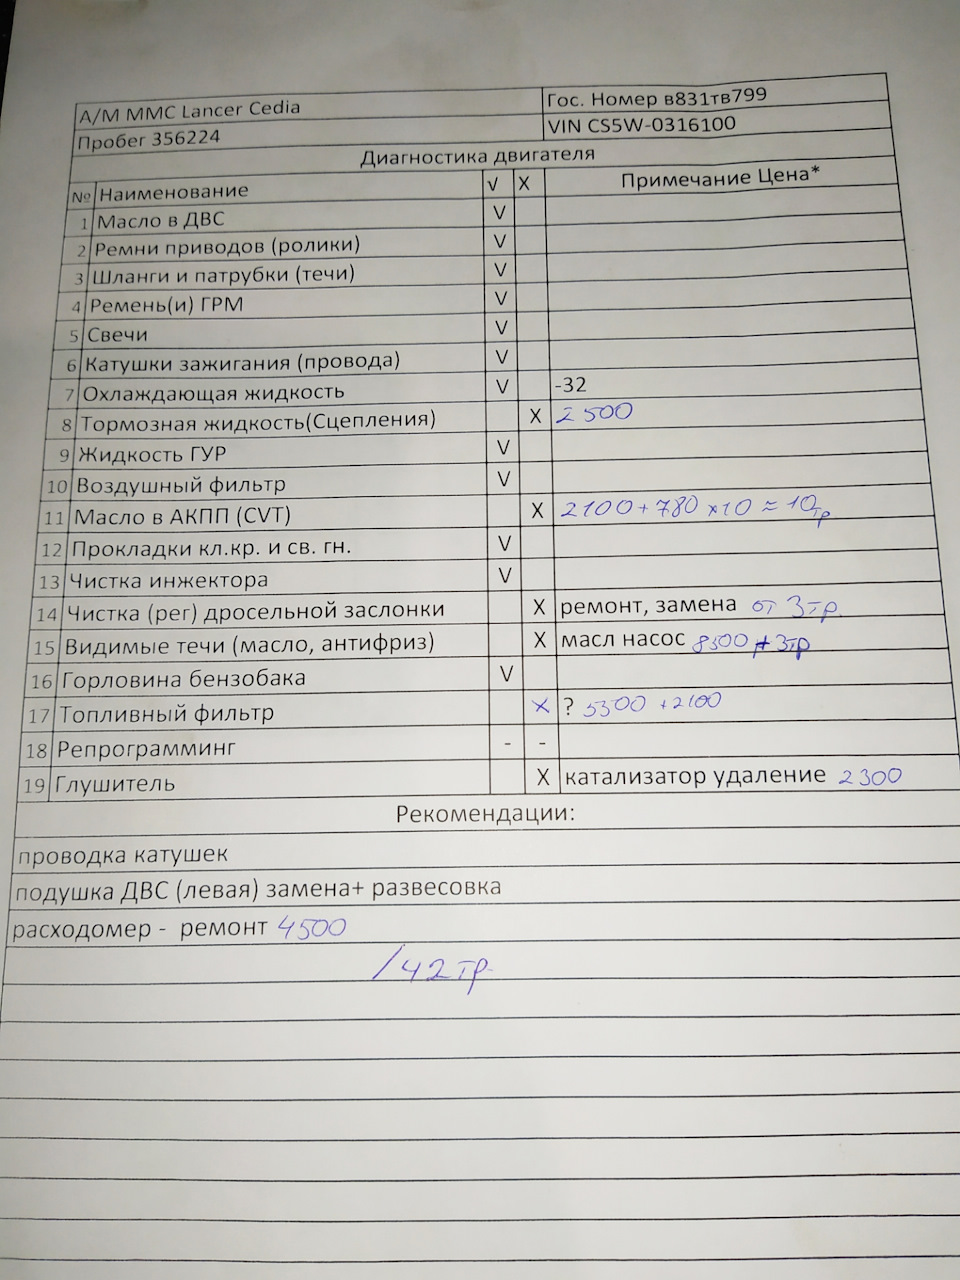 А/М ММС Lancer Cedia Гос. Номер в831тв799
Пробег 356224 VIN CS5W-0316100
Диагностика двигателя
№ Наименование √ X Примечание Цена*
1 Масло в ДВС V
2 Ремни приводов (ролики) V
3 Шланги и патрубки (течи) V
4 Ремень(и) ГРМ V
5 Свечи V
6 Катушки зажигания (провода) V
7 Охлаждающая жидкость V -32
8 Тормозная жидкость(Сцепления) X 2500
9 Жидкость ГУР V
10 Воздушный фильтр V
11 Масло в АКПП (CVT) X 2100+780 x10 ≈ 10тр
12 Прокладки кл.кр. и св. гн. V
13 Чистка инжектора V
14 Чистка (рег) дросельной заслонки X ремонт, замена от 3тр.
15 Видимые течи (масло, антифриз) X масл насос 8500 + 3тр
16 Горловина бензобака V
17 Топливный фильтр X ? 5300 +2100
18 Репрограмминг - -
19 Глушитель X катализатор удаление 2300
Рекомендации:
проводка катушек
подушка ДВС (левая) замена+ развесовка
расходомер - ремонт 4500
/42тр.